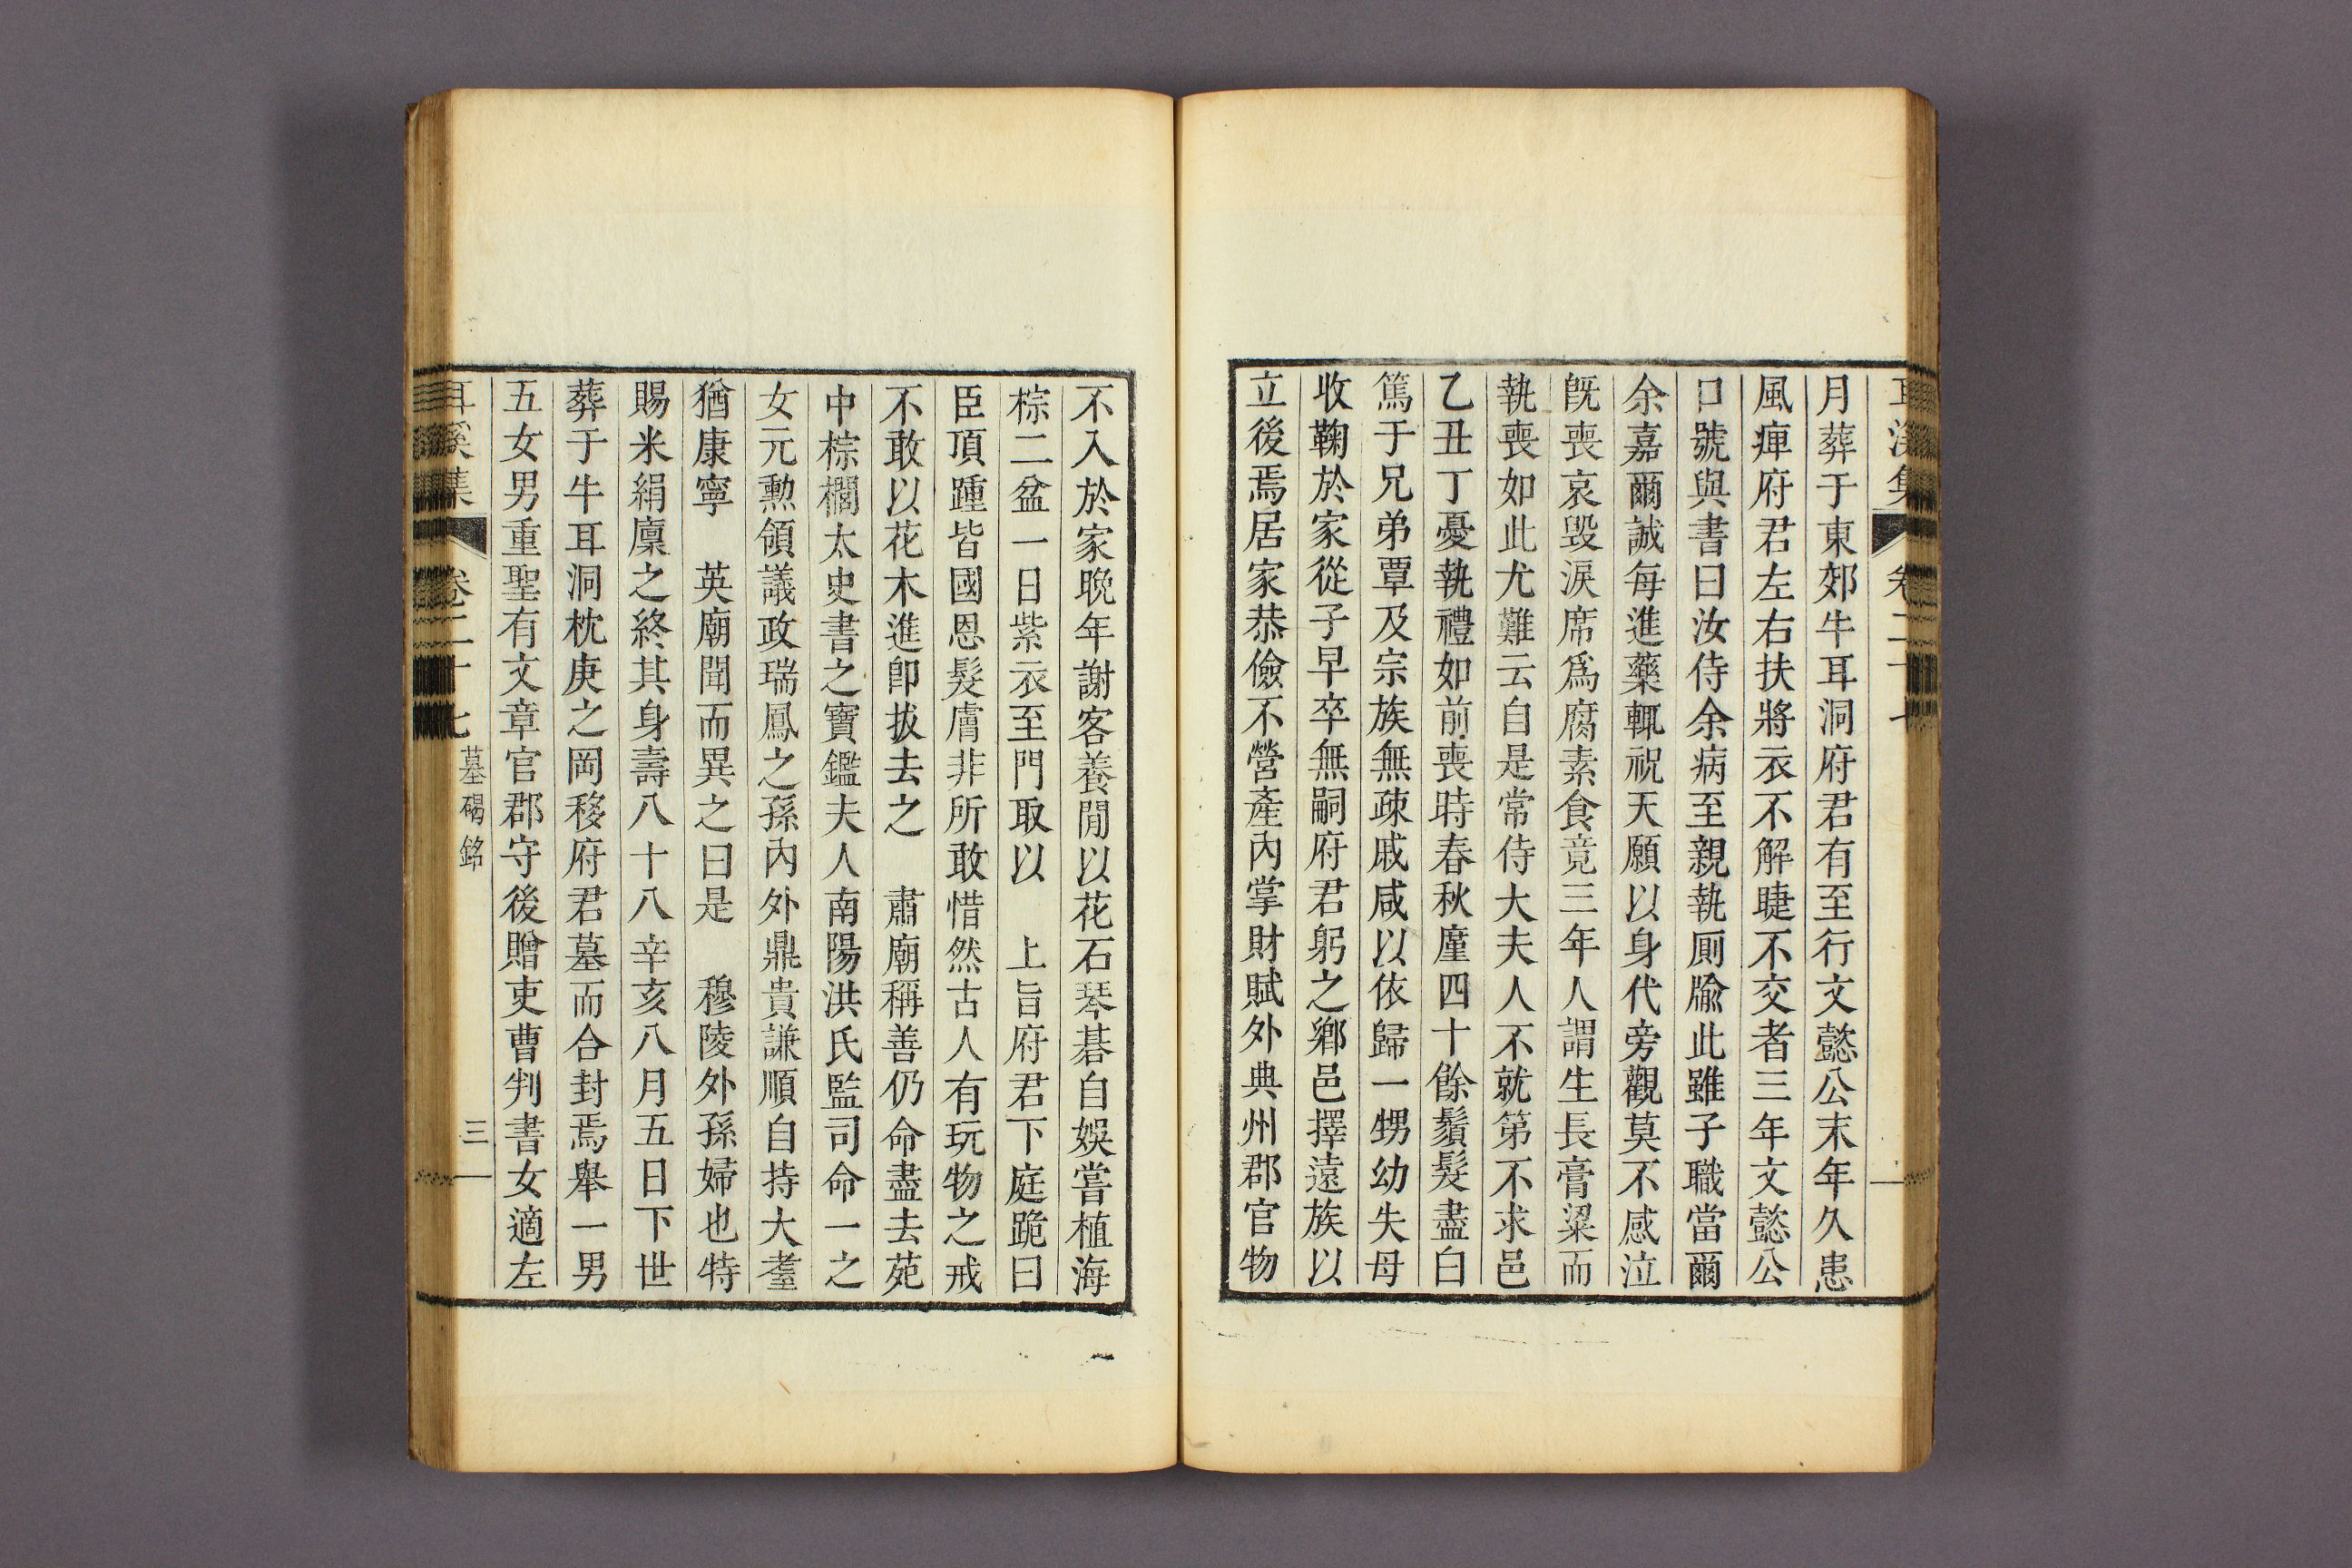 月葬于東郊牛耳洞府君有至行文懿公末年久患
風痺府君左右扶將衣不解睫不交者三年文懿公
口號與書曰汝侍余病至親執厠牏此雖子職當爾
余嘉爾誠每進藥輒祝天願以身代旁觀莫不感泣
旣喪哀毀淚席爲腐素食竟三年人謂生長膏粱而
執喪如此尤難云自是常侍大夫人不就第不求邑
乙丑丁憂執禮如前喪時春秋廑四十餘鬚髮盡白
篤于兄弟覃及宗族無疎戚咸以依歸一甥幼失母
收鞠於家從子早卒無嗣府君躬之鄕邑擇遠族以
立後焉居家恭儉不營產內掌財賦外典州郡官物
不入於家晩年謝客養閒以花石琴碁自娛嘗植海
棕二盆一日紫衣至門取以 上旨府君下庭跪曰
臣頂踵皆國恩髮膚非所敢惜然古人有玩物之戒
不敢以花木進卽拔去之 肅廟稱善仍命盡去苑
中棕櫚太史書之寶鑑夫人南陽洪氏監司命一之
女元勲領議政瑞鳳之孫內外鼎貴謙順自持大耋
猶康寧 英廟聞而異之曰是 穆陵外孫婦也特
賜米絹廩之終其身壽八十八辛亥八月五日下世
葬于牛耳洞枕庚之岡移府君墓而合封焉舉一男
五女男重聖有文章官郡守後贈吏曹判書女適左
耳溪集 卷二十七 墓碣銘 三